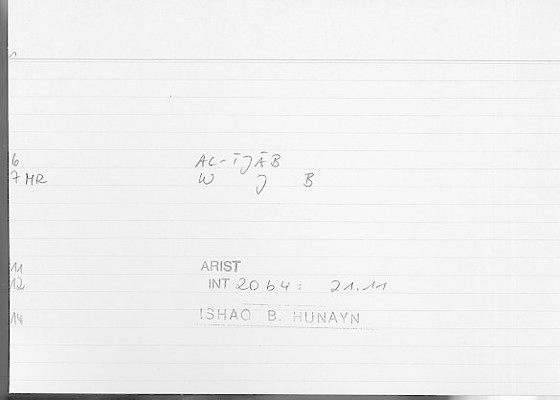 1
6 AL-ĪJĀB
7 MR W J B
11 ARIST
12 INT 20b4: 21.11
14 ISHAQ B. HUNAYN